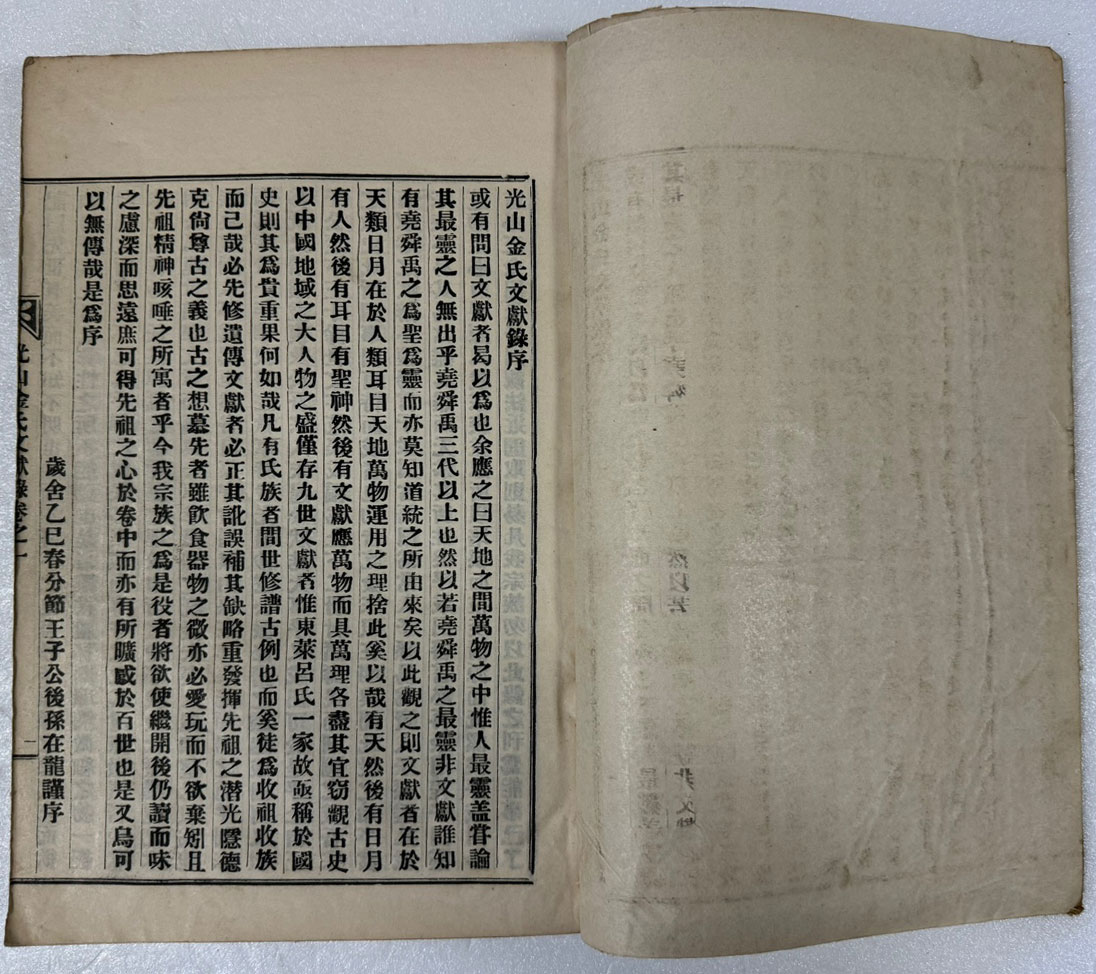 光山金氏文獻錄序
或有問曰文獻者曷以爲也余應之曰天地之間萬物之中惟人最靈盖甞論
其最靈之人無出乎堯舜禹三代以上也然以若堯舜禹之最靈非文獻誰知
有堯舜禹之爲聖爲靈而亦莫知道統之所由來矣以此觀之則文獻者在於
天類日月在於人類耳目天地萬物運用之理捨此奚以哉有天然後有日月
有人然後有耳目有聖神然後有文獻應萬物而具萬理各盡其宜窃觀古史
以中國地域之大人物之盛僅存九世文獻者惟東萊呂氏一家故亟稱於國
史則其爲貴重果何如哉凡有氏族者間世修譜古例也而奚徒爲收祖收族
而己哉必先修遺傳文獻者必正其訛誤補其缺略重發揮先祖之潜光隱德
克尙尊古之義也古之想慕先者雖飮食器物之微亦必愛玩而不欲棄矧且
先祖精神咳唾之所寓者乎今我宗族之爲是役者將欲使繼開後仍讀而味
之慮深而思遠庶可得先祖之心於卷中而亦有所曠感於百世也是又烏可
以無傳哉是爲序
歲舍乙巳春分節王子公後孫在龍謹序
光山金氏文獻錄卷之一